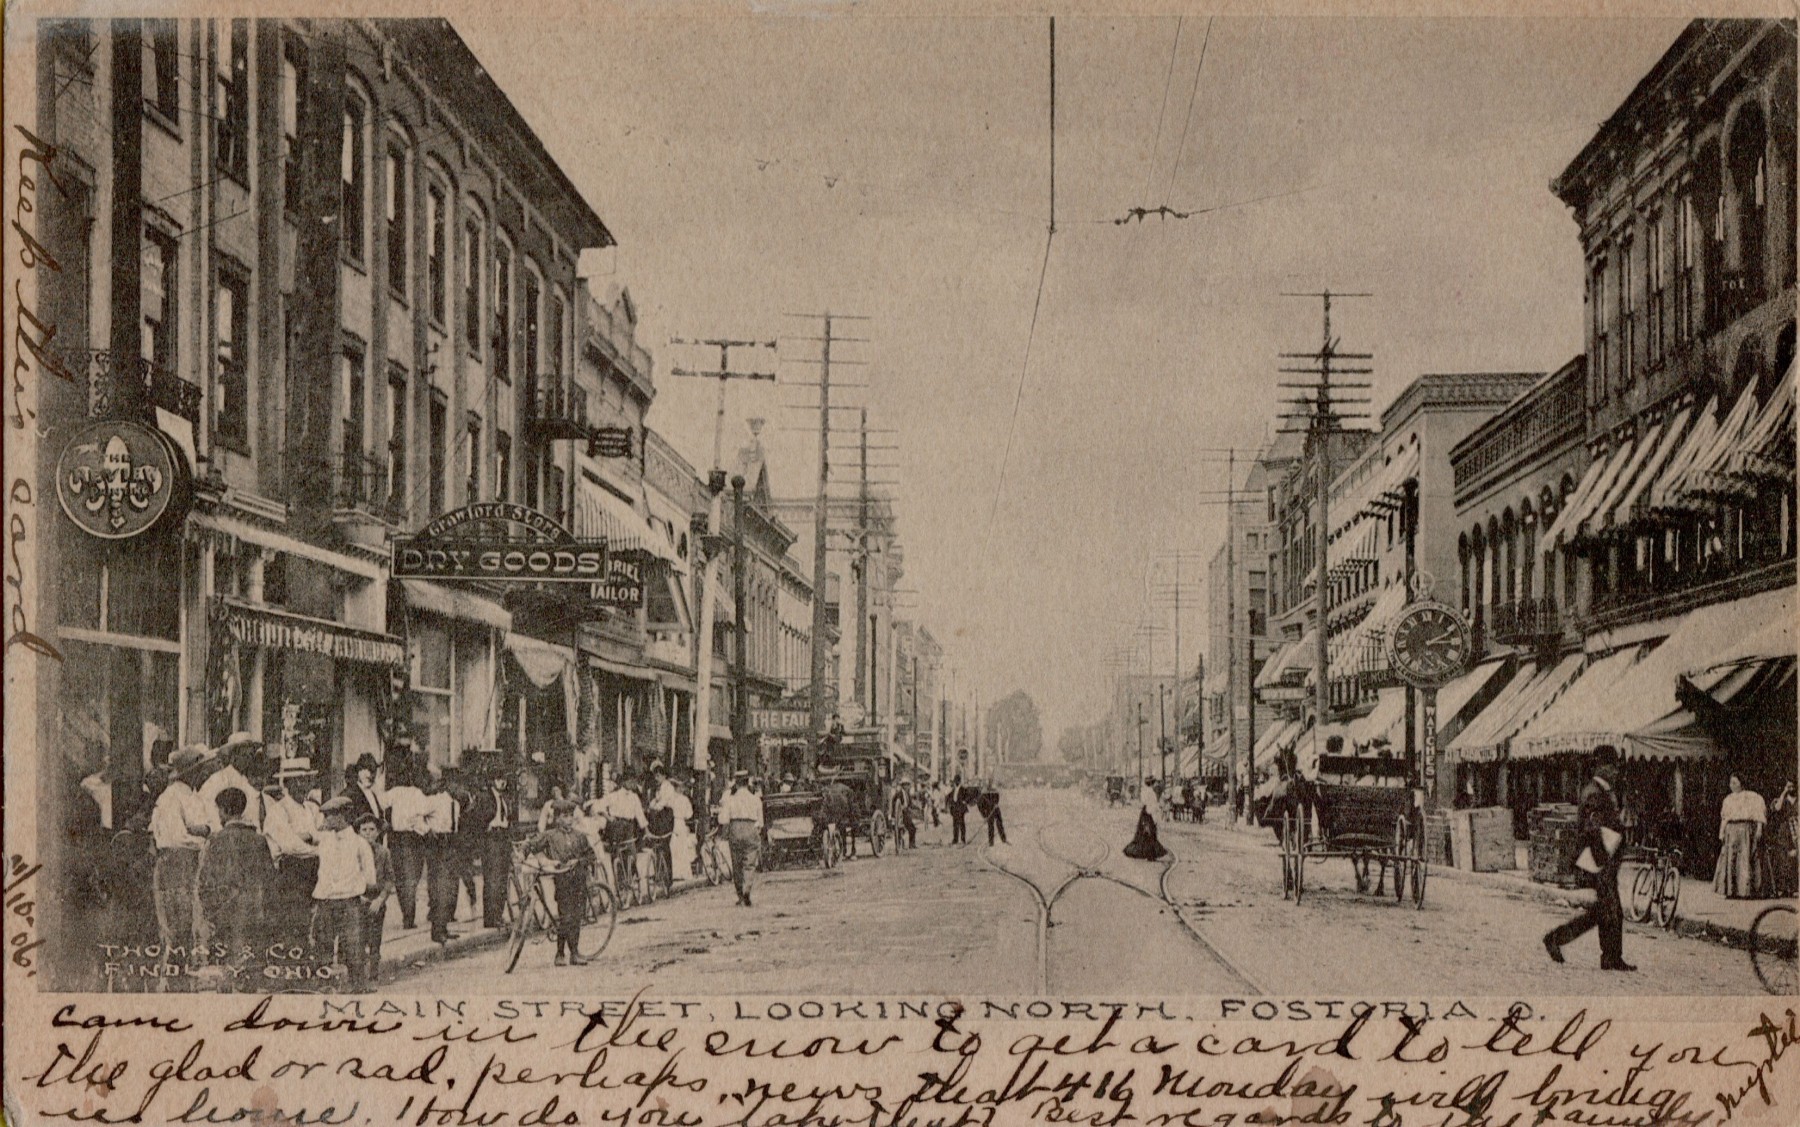 Keep this card
2/10-06.
THE
Crawford Store
DRY GOODS
TAILOR
THE FAIR
WATCHES
THOMAS & CO.
FINDLAY, OHIO.
MAIN STREET, LOOKING NORTH, FOSTORIA, O.
came down in the snow to get a card to tell you
the glad or sad, perhaps, news that 416 Monday will bring
us home. How do you take that? Best regards to the family.